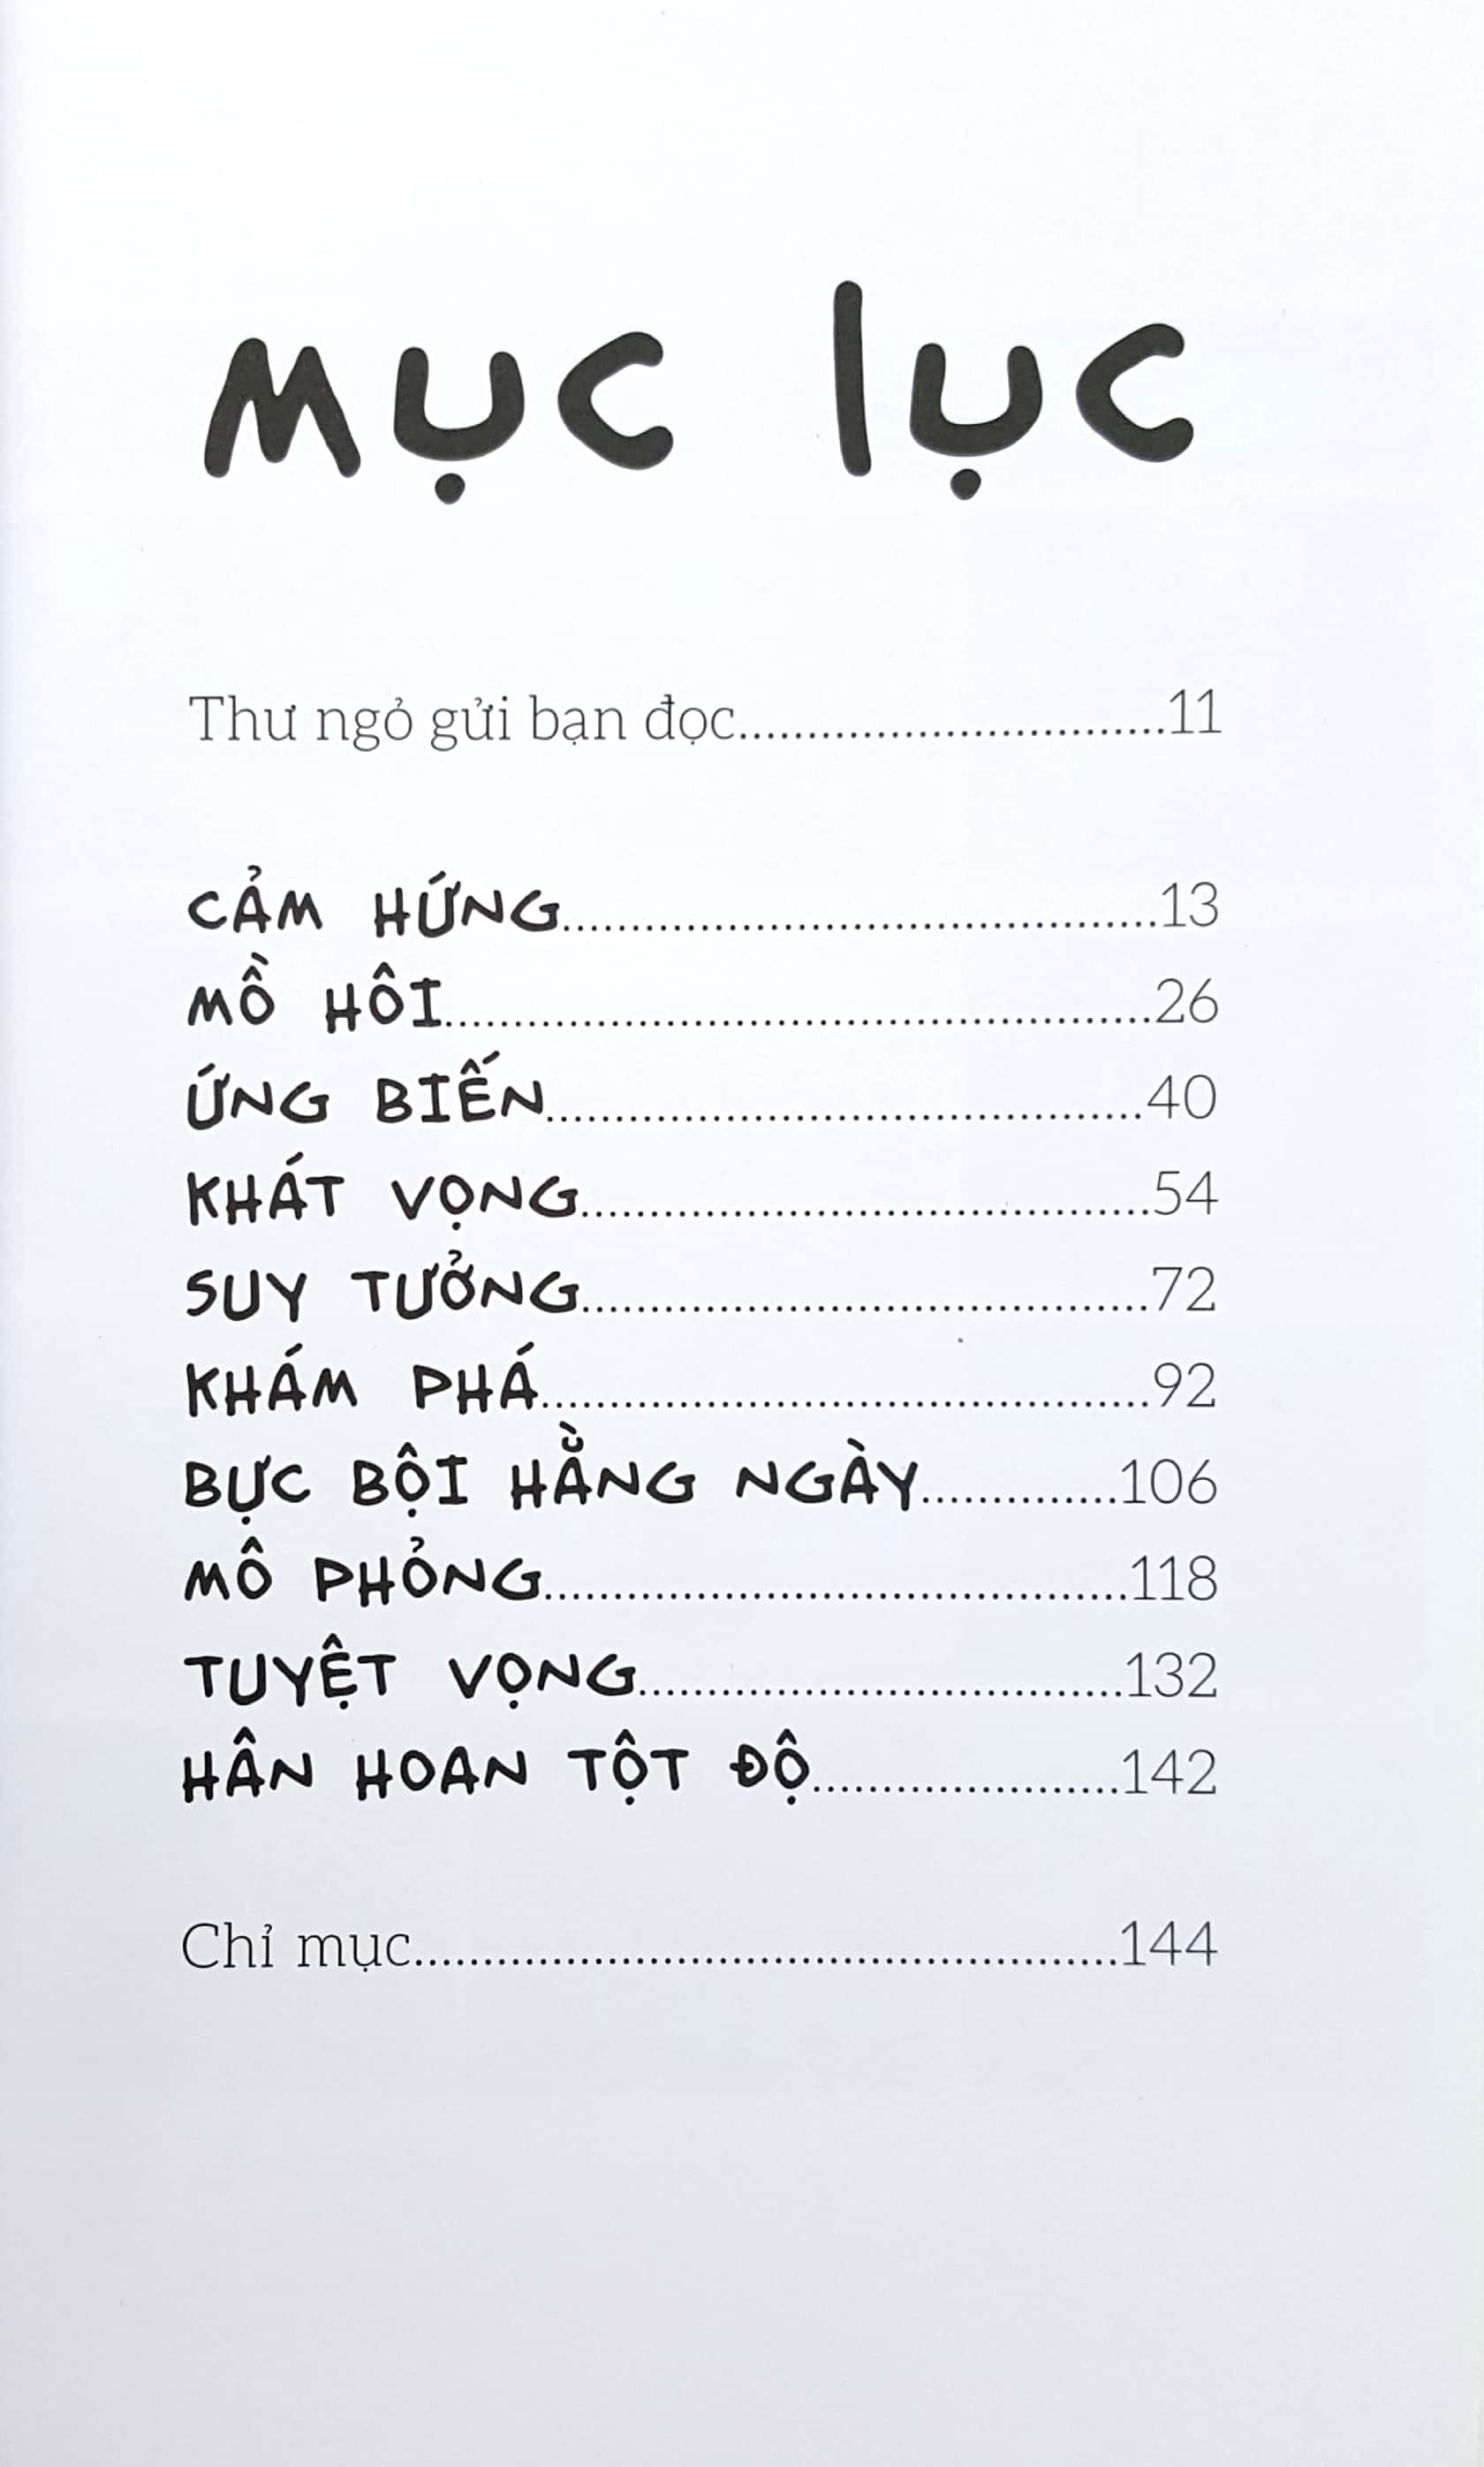 mục lục
Thư ngỏ gửi bạn đọc...............................11
CẢM HỨNG...........................................13
MỒ HÔI...................................................26
ỨNG BIẾN...........................................40
KHÁT VỌNG.........................................54
SUY TƯỞNG.........................................72
KHÁM PHÁ............................................92
BỰC BỘI HẰNG NGÀY..............106
MÔ PHỎNG..........................................118
TUYỆT VỌNG...................................132
HÂN HOAN TỘT ĐỘ......................142
Chỉ mục...................................................144